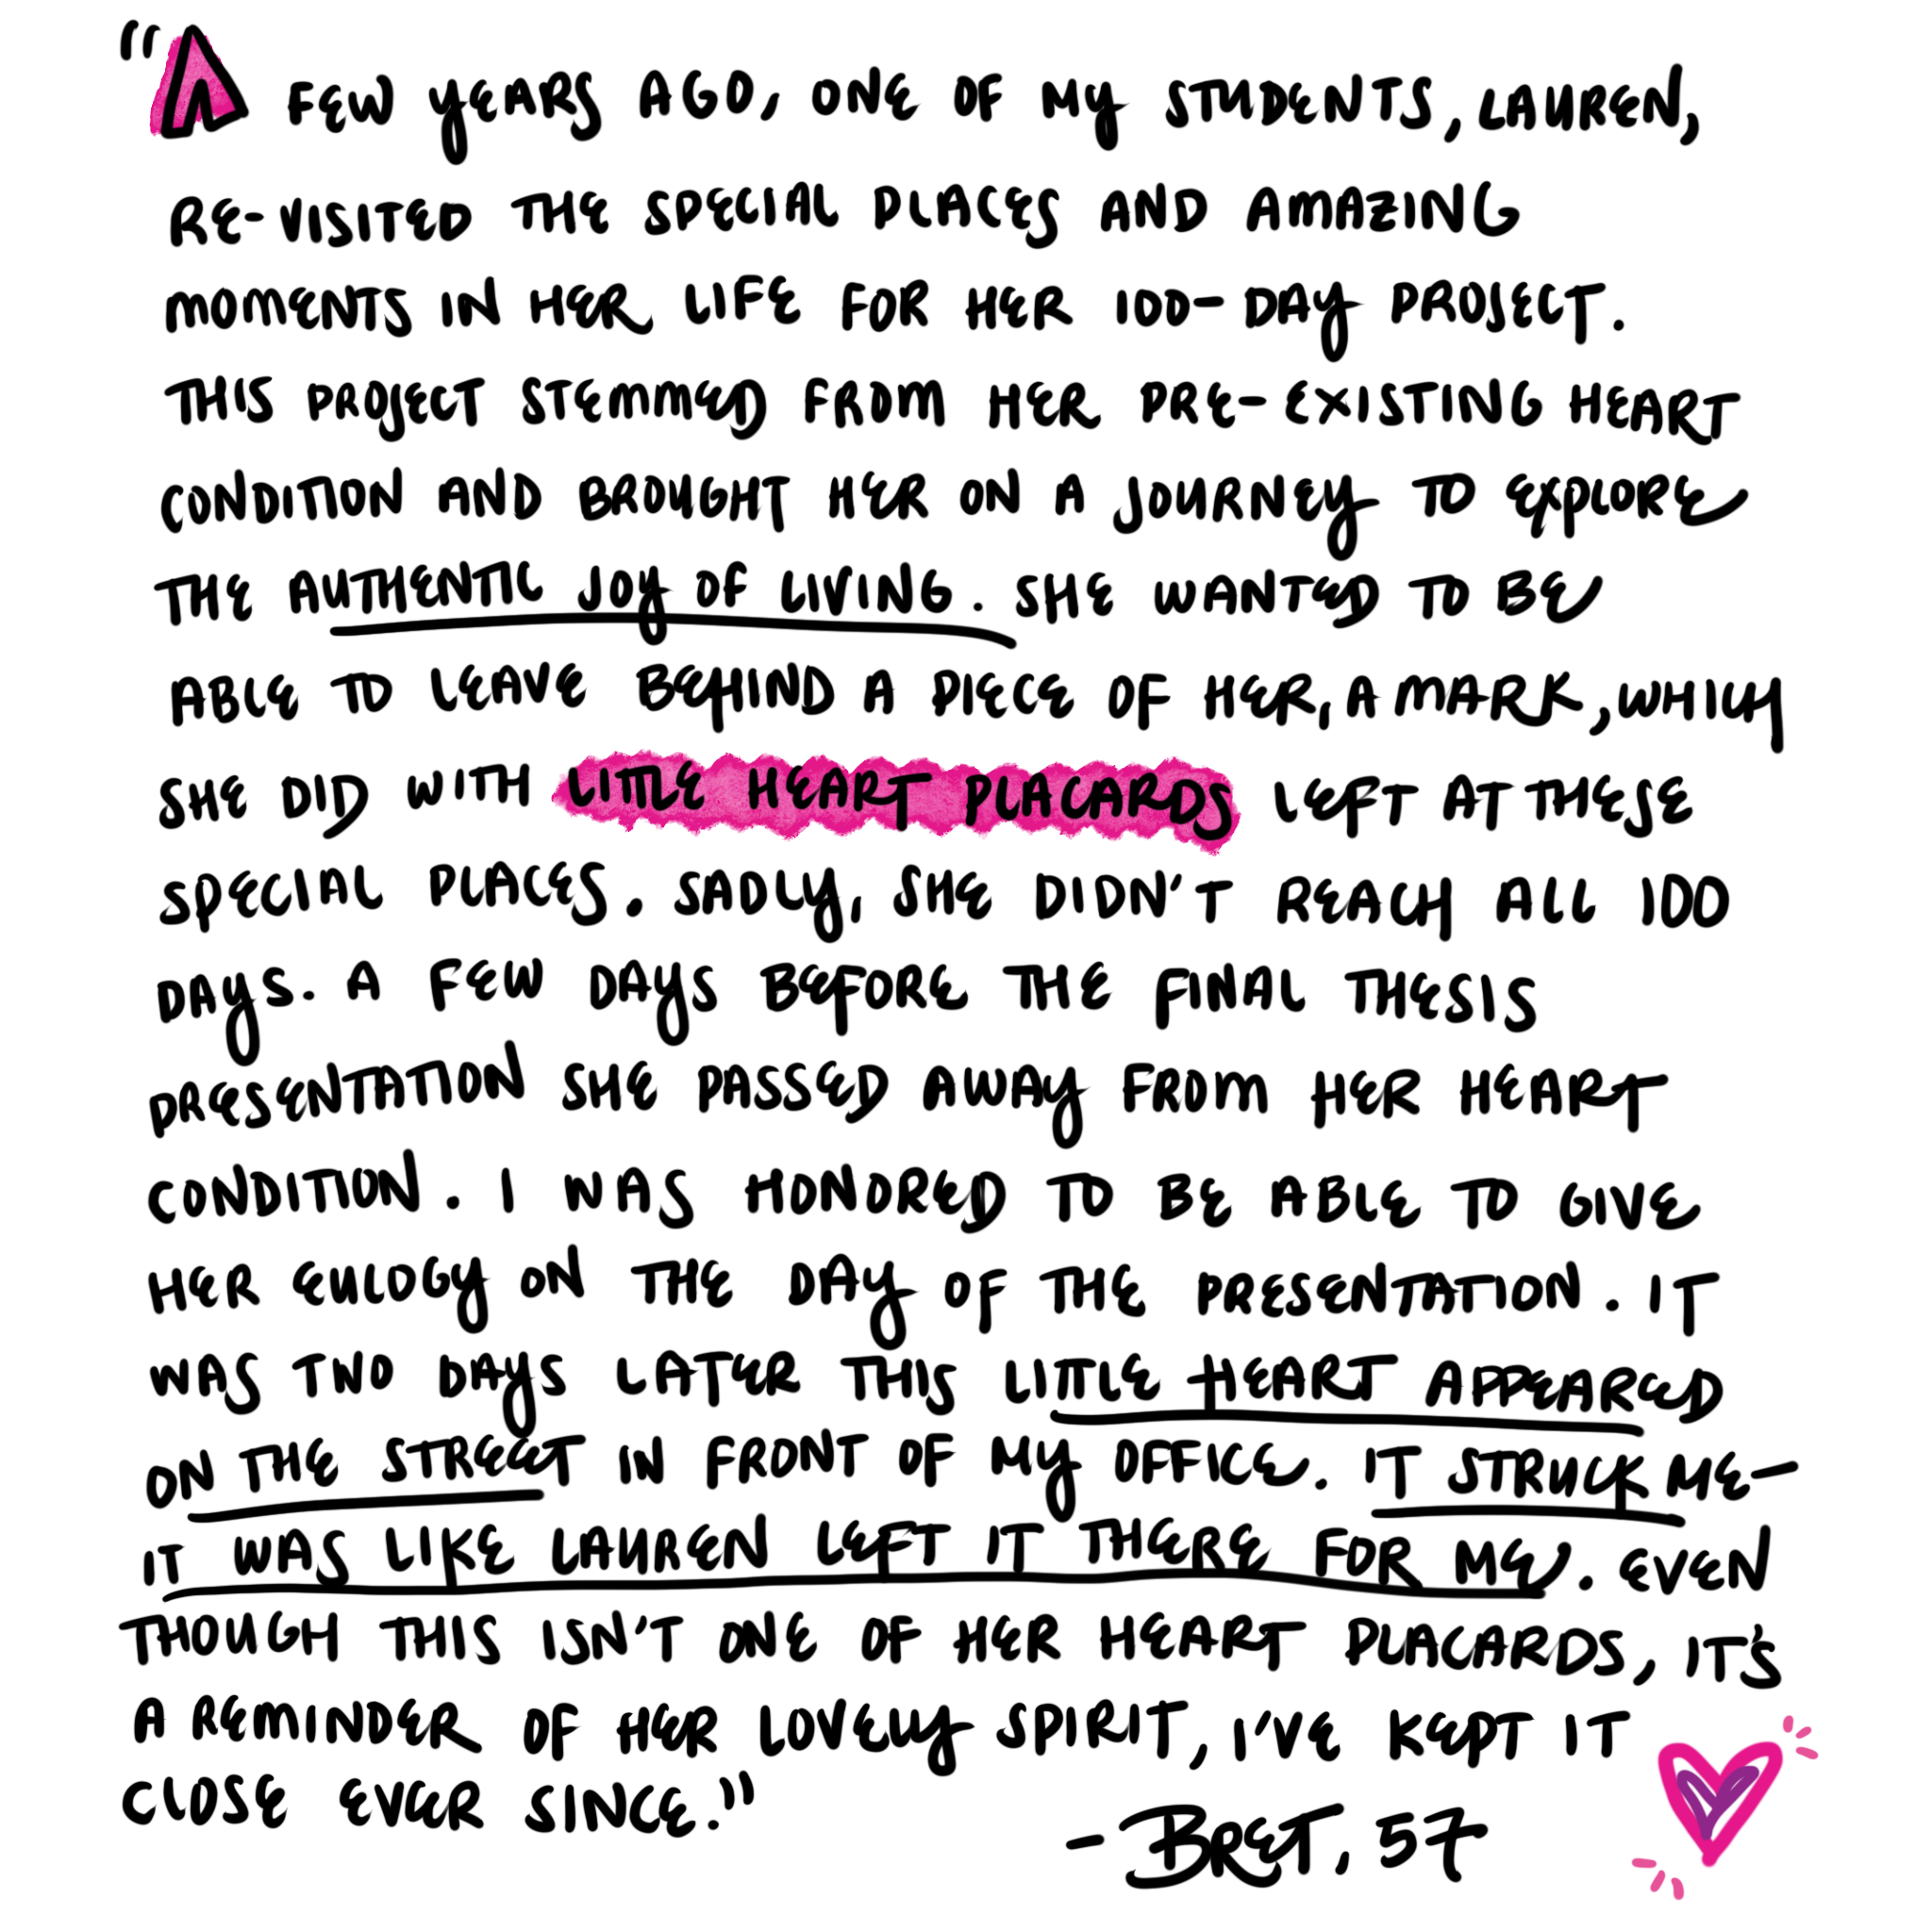 "A FEW YEARS AGO, ONE OF MY STUDENTS, LAUREN,
RE-VISITED THE SPECIAL PLACES AND AMAZING
MOMENTS IN HER LIFE FOR HER 100-DAY PROJECT.
THIS PROJECT STEMMED FROM HER PRE-EXISTING HEART
CONDITION AND BROUGHT HER ON A JOURNEY TO EXPLORE
THE AUTHENTIC JOY OF LIVING. SHE WANTED TO BE
ABLE TO LEAVE BEHIND A PIECE OF HER, A MARK, WHICH
SHE DID WITH LITTLE HEART PLACARDS LEFT AT THESE
SPECIAL PLACES. SADLY, SHE DIDN'T REACH ALL 100
DAYS. A FEW DAYS BEFORE THE FINAL THESIS
PRESENTATION SHE PASSED AWAY FROM HER HEART
CONDITION. I WAS HONORED TO BE ABLE TO GIVE
HER EULOGY ON THE DAY OF THE PRESENTATION. IT
WAS TWO DAYS LATER THIS LITTLE HEART APPEARED
ON THE STREET IN FRONT OF MY OFFICE. IT STRUCK ME-
IT WAS LIKE LAUREN LEFT IT THERE FOR ME. EVEN
THOUGH THIS ISN'T ONE OF HER HEART PLACARDS, IT'S
A REMINDER OF HER LOVELY SPIRIT, I'VE KEPT IT
CLOSE EVER SINCE."
- BRET, 57